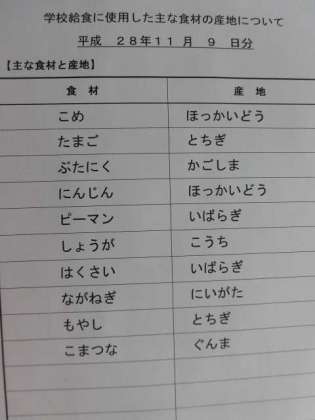 学校給食に使用した主な食材の産地について
平成 28年11月 9 日分
【主な食材と産地】
食 材 産 地
こめ ほっかいどう
たまご とちぎ
ぶたにく かごしま
にんじん ほっかいどう
ピーマン いばらぎ
しょうが こうち
はくさい いばらぎ
ながねぎ にいがた
もやし とちぎ
こまつな ぐんま